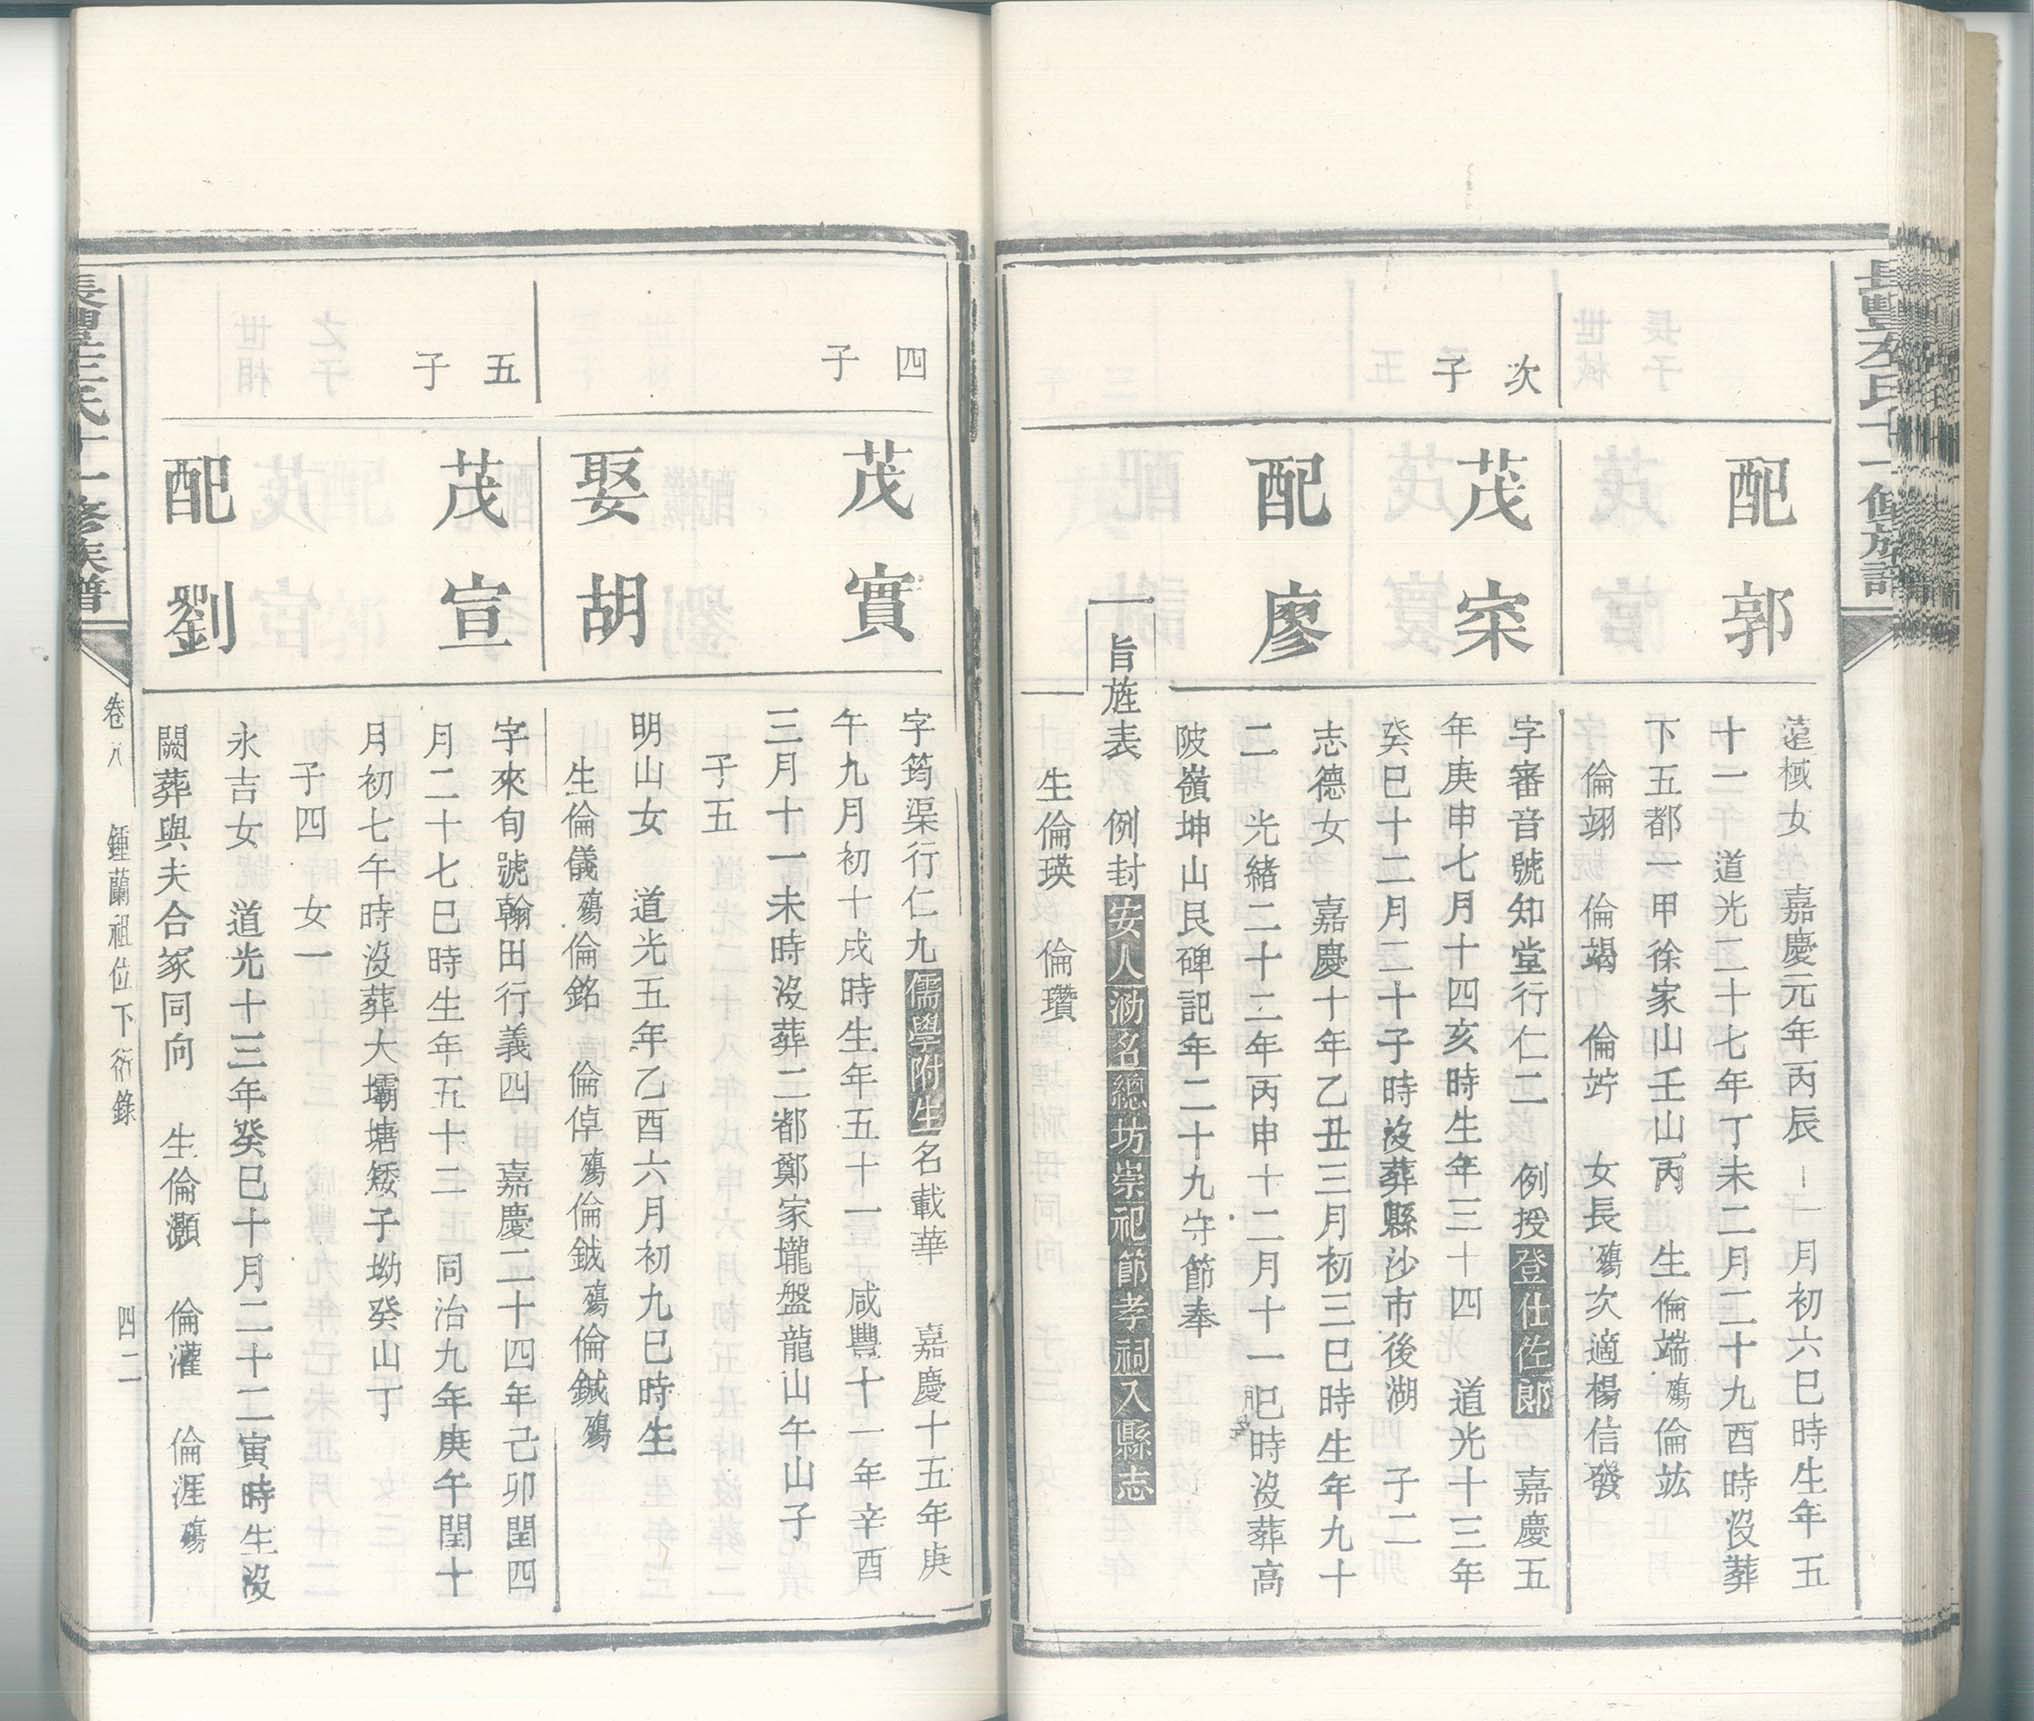 配郭
蘧棫女 嘉慶元年丙辰十一月初六巳時生年五
十二 道光二十七年丁未二月二十九酉時沒葬
下五都一甲徐家山壬山丙 生倫端殤倫竑
倫翊 倫竭 倫竚 女長殤次適楊信發
次子
茂寀
字審音號知堂行仁二 例授登仕佐郎 嘉慶五
年庚申七月十四亥時生年三十四 道光十三年
癸巳十二月二十子時沒葬縣沙市後湖 子二
配廖
志德女 嘉慶十年乙丑三月初三巳時生年九十
二 光緒二十二年丙申十二月十一巳時沒葬高
陂嶺坤山艮碑記年二十九守節奉
旨旌表 例封安人泐名總坊崇祀節孝祠入縣志
生倫瑛 倫瓚
四子
茂實
字筠渠行仁九儒學附生名載華 嘉慶十五年庚
午九月初十戌時生年五十一 咸豐十一年辛酉
三月十一未時沒葬二都鄭家壠盤龍山午山子
子五
娶胡
明山女 道光五年乙酉六月初九巳時生
生倫儀殤倫銘 倫倬殤倫鉞殤倫鍼殤
五子
茂宣
字來旬號翰田行義四 嘉慶二十四年己卯閏四
月二十七巳時生年五十二 同治九年庚午閏十
月初七午時沒葬大壩塘矮子坳癸山丁
子四 女一
配劉
永吉女 道光十三年癸巳十月二十二寅時生沒
闕葬與夫合冢同向 生倫灝 倫灌 倫涯殤
氏十一修族譜
卷八 鍾蘭祖位下衍錄 四二